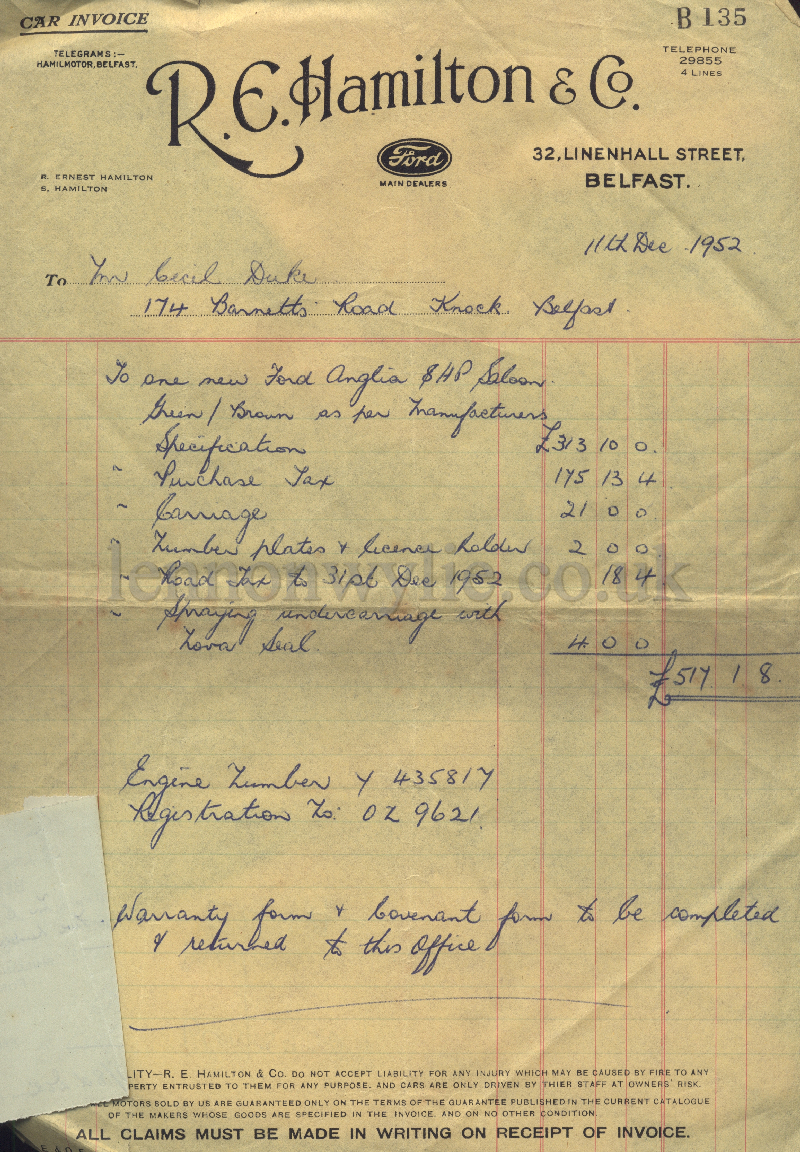 CAR INVOICE
B 135
TELEGRAMS:-
HAMILMOTOR, BELFAST.
TELEPHONE
29855
4 LINES
R. E. Hamilton & Co.
Ford
MAIN DEALERS
32, LINENHALL STREET,
BELFAST.
R. ERNEST HAMILTON
S. HAMILTON
11th Dec 1952
To Mr Cecil Duke
174 Barnetts Road Knock Belfast.
To one new Ford Anglia 8 HP Saloon.
Green / Brown as per Manufacturers
Specification £313 10 0.
" Purchase Tax 175 13 4
" Carriage 21 0 0
" Number plates & licence holder 2 0 0
" Road Tax to 31st Dec 1952 18 4
" Spraying undercarriage with
Nova Seal. 4 0 0
£517 1 8.
lennonwylie.co.uk
Engine Number Y 435817
Registration No: OZ 9621
Warranty form & Covenant form to be completed
& returned to this Office
LITY—R. E. HAMILTON & CO. DO NOT ACCEPT LIABILITY FOR ANY INJURY WHICH MAY BE CAUSED BY FIRE TO ANY
PERTY ENTRUSTED TO THEM FOR ANY PURPOSE. AND CARS ARE ONLY DRIVEN BY THIER STAFF AT OWNERS' RISK.
MOTORS SOLD BY US ARE GUARANTEED ONLY ON THE TERMS OF THE GUARANTEE PUBLISHED IN THE CURRENT CATALOGUE
OF THE MAKERS WHOSE GOODS ARE SPECIFIED IN THE INVOICE. AND ON NO OTHER CONDITION.
ALL CLAIMS MUST BE MADE IN WRITING ON RECEIPT OF INVOICE.